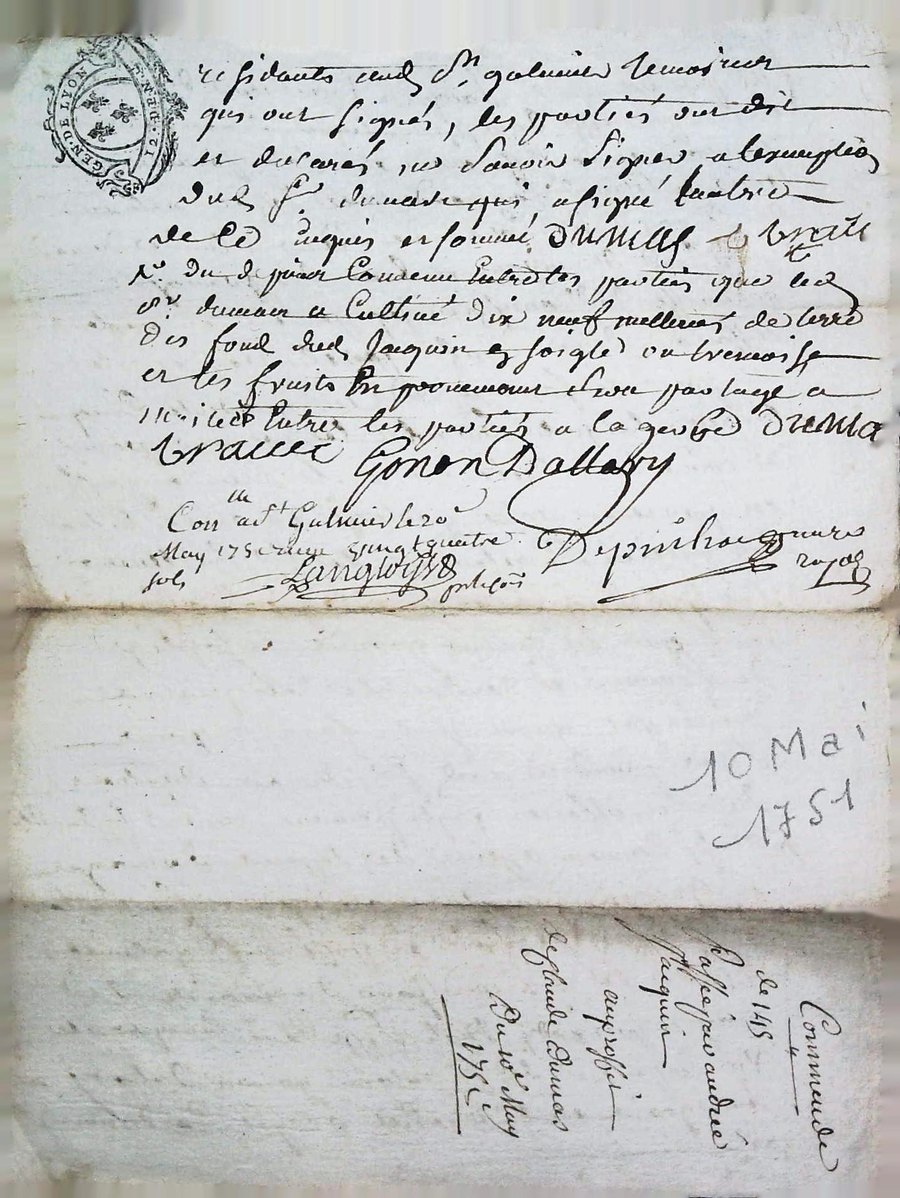 GEN·DE·LYON
residants aud Sr. galmier temoins
qui ont signés, les parties ont dit
et declarés ne savoir signer a lexception
dud Sr. dumas qui a signé
de ce enquis et sommé DUMAS
du de plus convenu Entre les parties que led
Sr. dumas a Cultivé dix neuf de terre
des fond dud Jacquin en soigle ou tremoise
et les fruits En provenant a
moitiée Entre les parties a la gerbe DUMA
Gonon Dallery
Conlle a St Galmier le 20e
May 175 vingt quatre
sols Langloys
Depinhac nore
royal
10 Mai
1751
Commande
de 145
Passé jean andrée
Jacquin
au proffit
de Claude Dumas
Du 10e May
175